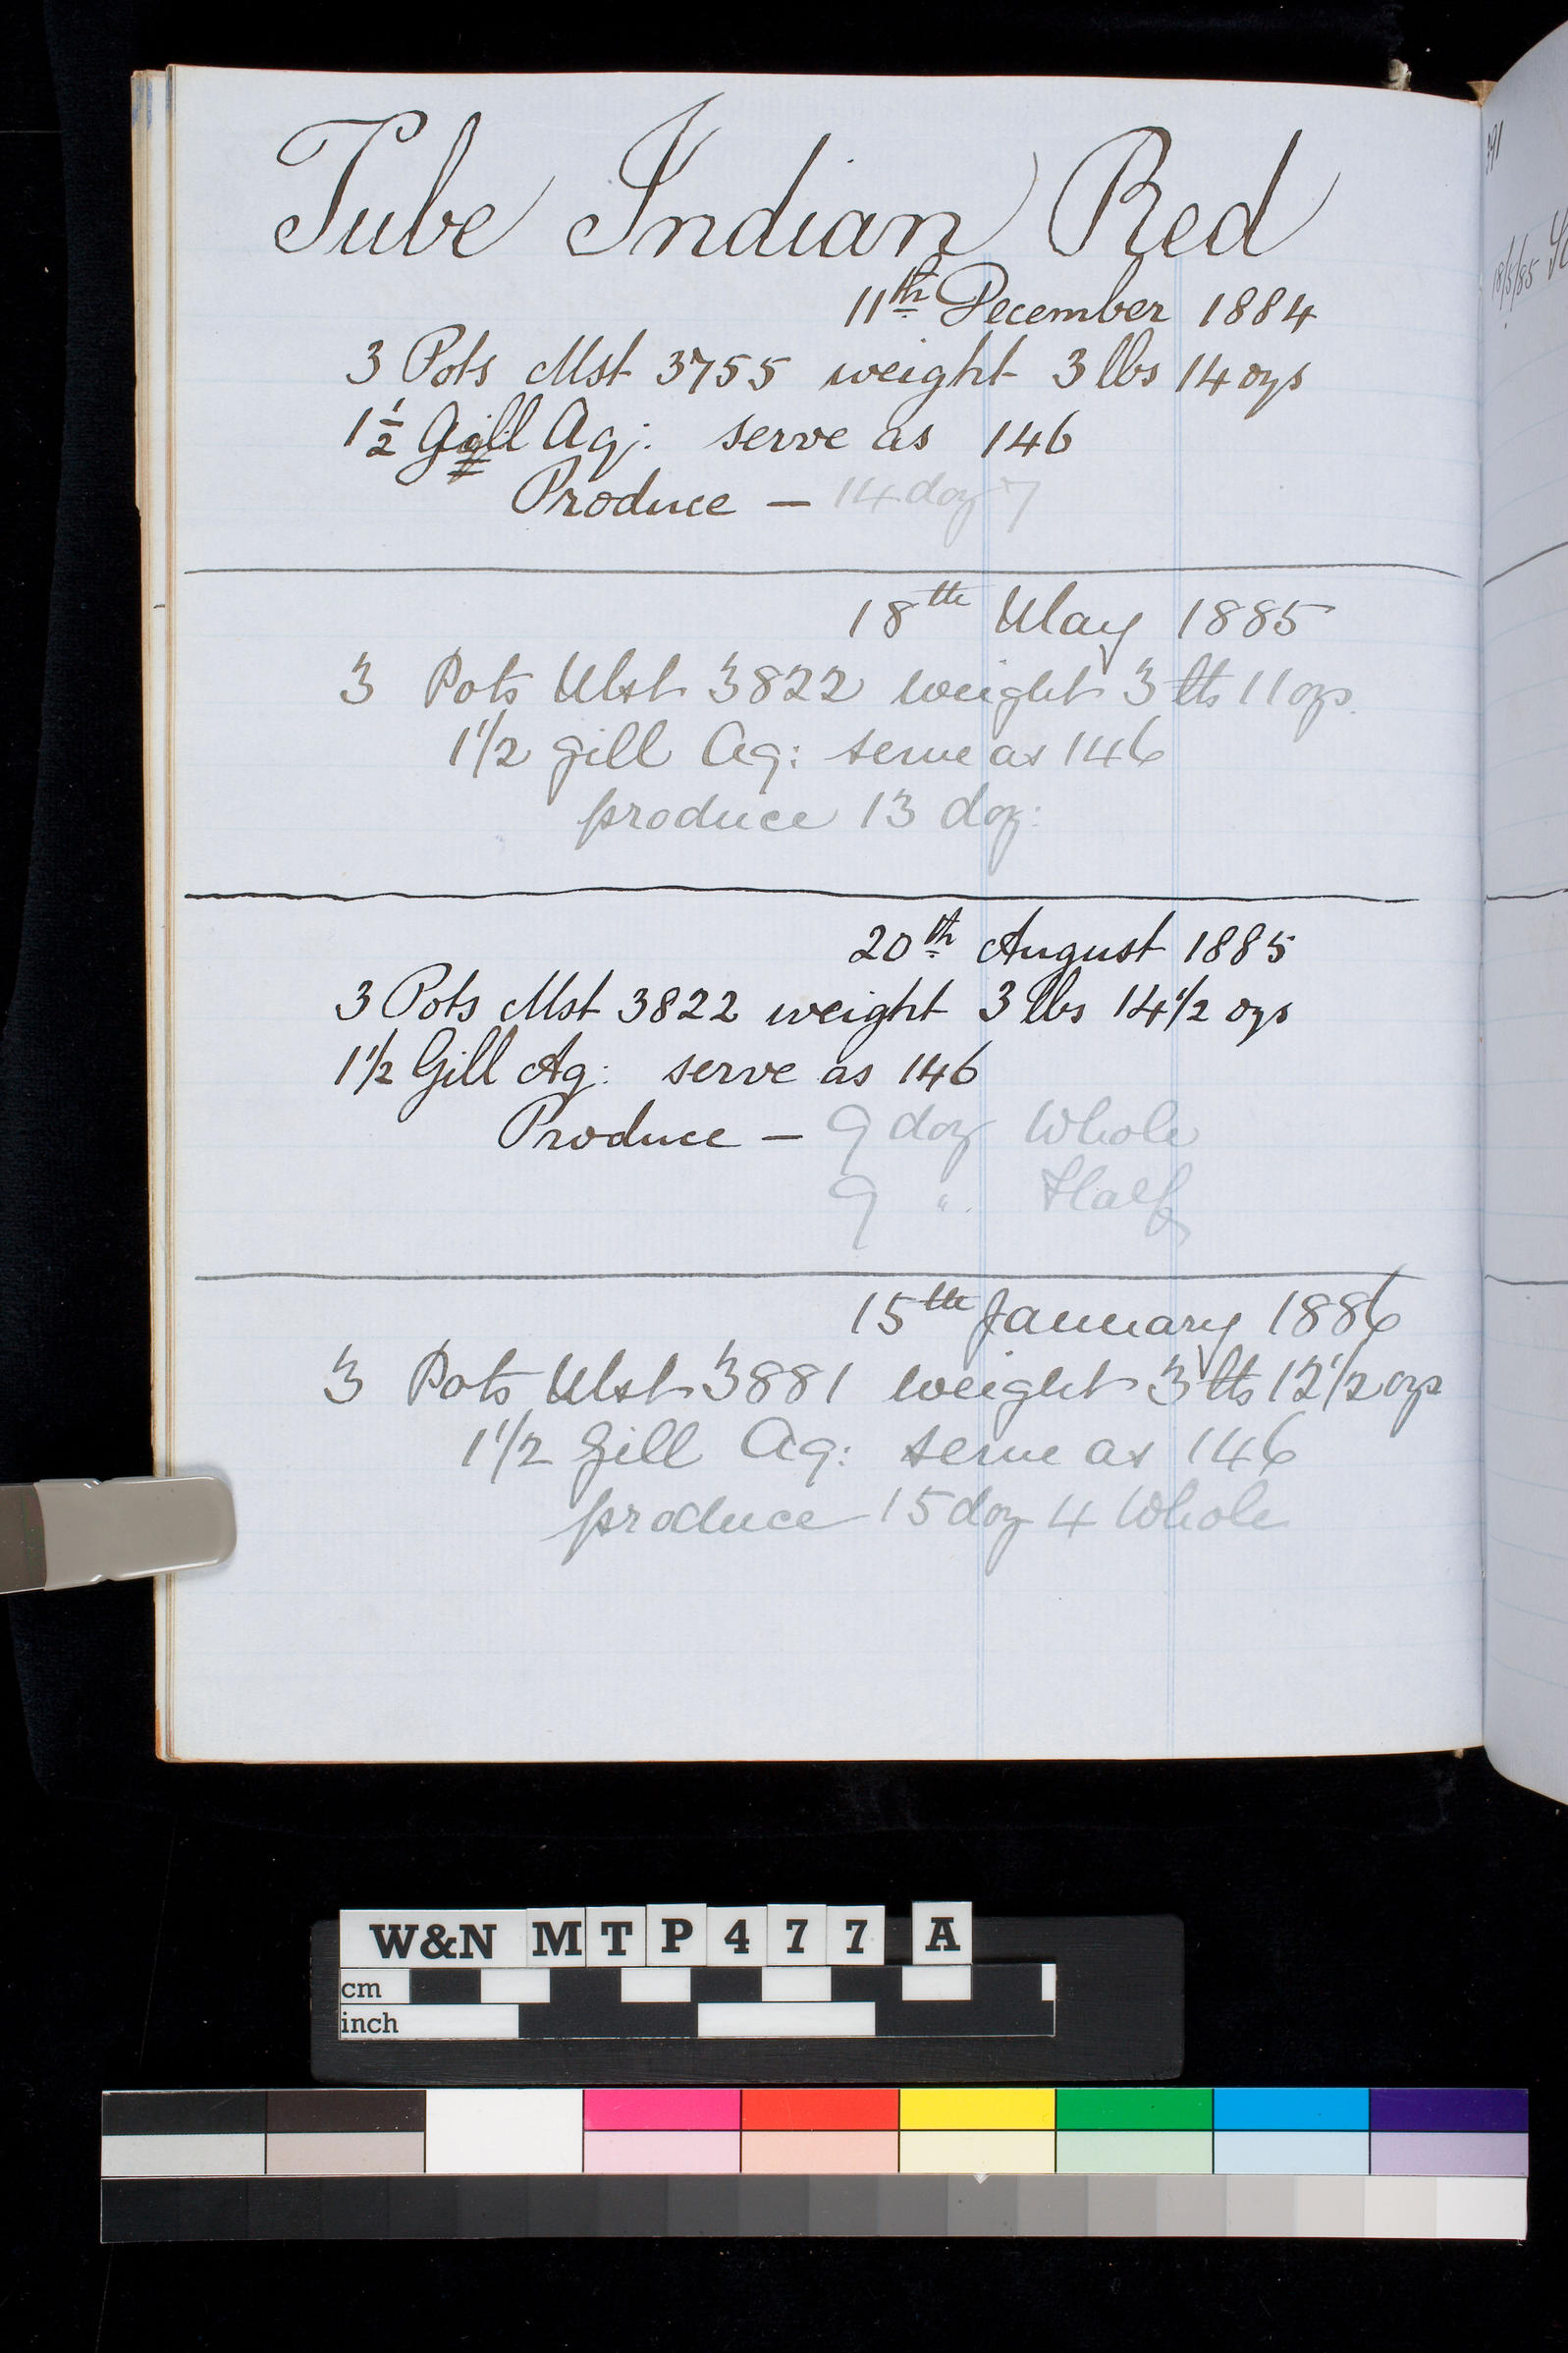 Tube Indian Red
11th December 1884
3 Pots Mst 3755 weight 3 lbs 14 ozs
1½ Gill Aq: serve as 146
Produce – 14 doz 7
18th May 1885
3 Pots Mst 3822 weight 3 lbs 11 ozs
1½ gill Aq: serve as 146
produce 13 doz:
20th August 1885
3 Pots Mst 3822 weight 3 lbs 14½ ozs
1½ Gill Aq: serve as 146
Produce – 9 doz Whole
9 " Half
15th January 1886
3 Pots Mst 3881 weight 3 lbs 12½ ozs
1½ Gill Aq: serve as 146
produce 15 doz 4 Whole
391
18/5/85
W&N MTP477 A
cm
inch